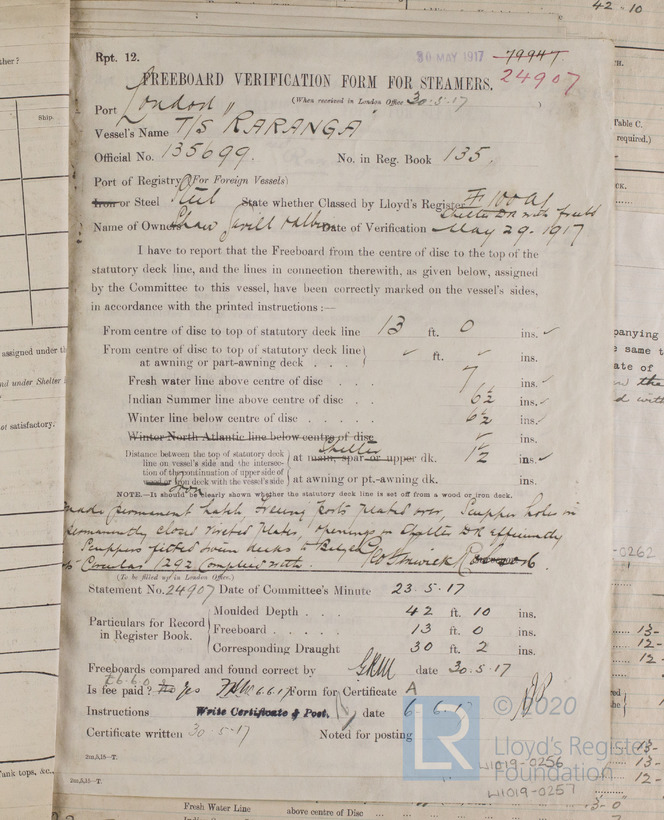 42 - 10
Rpt. 12.
30 MAY 1917
79947
24907
FREEBOARD VERIFICATION FORM FOR STEAMERS.
(When received in London Office 30.5.17 )
Port London
Vessel's Name T/S "RARANGA"
Official No. 135699. No. in Reg. Book 135.
Port of Registry (For Foreign Vessels)
Iron or Steel Steel State whether Classed by Lloyd's Register ✠ 100 A1
Shelter Dk with freeb'd
Name of Owners Shaw Savill & Albion Date of Verification May 29. 1917
I have to report that the Freeboard from the centre of disc to the top of the
statutory deck line, and the lines in connection therewith, as given below, assigned
by the Committee to this vessel, have been correctly marked on the vessel's sides,
in accordance with the printed instructions:—
From centre of disc to top of statutory deck line 13 ft. 0 ins.
From centre of disc to top of statutory deck line
at awning or part-awning deck . . . ft. ins.
Fresh water line above centre of disc . . . 7 ins.
Indian Summer line above centre of disc . . 6½ ins.
Winter line below centre of disc . . . . . 6½ ins.
Winter North Atlantic line below centre of disc ins.
Distance between the top of statutory deck
line on vessel's side and the intersec-
tion of the continuation of upper side of
wood or iron deck with the vessel's side
Iron
Shelter
at main, spar or upper dk. 1½ ins.
at awning or pt.-awning dk. ins.
NOTE.—It should be clearly shown whether the statutory deck line is set off from a wood or iron deck.
made permanent hatch freeing ports plated over, Scupper holes in
permanently closed riveted plates, openings in Shelter Dk efficiently
Scuppers fitted tween decks to Bilges
Circular 1292 Complied with.
(To be filled up in London Office.)
Statement No. 24907 Date of Committee's Minute 23.5.17
Particulars for Record
in Register Book.
Moulded Depth . . . 42 ft. 10 ins.
Freeboard . . . . 13 ft. 0 ins.
Corresponding Draught 30 ft. 2 ins.
Freeboards compared and found correct by date 30.5.17
£6.6.0
Is fee paid? No yes 6.6.17 Form for Certificate A
Instructions Write Certificate & Post. date 6.6.17
Certificate written 30.5.17 Noted for posting
2m,5,15—T.
2m,5,15—T.
© 2020
Lloyd's Register
Foundation
LR
W1019-0256
W1019-0257
Ship.
assigned under th
nd under Shelter
of satisfactory.
Tank tops, &c.,
Table C.
required.)
panying
e same t
ate of
-0262
Fresh Water Line above centre of Disc